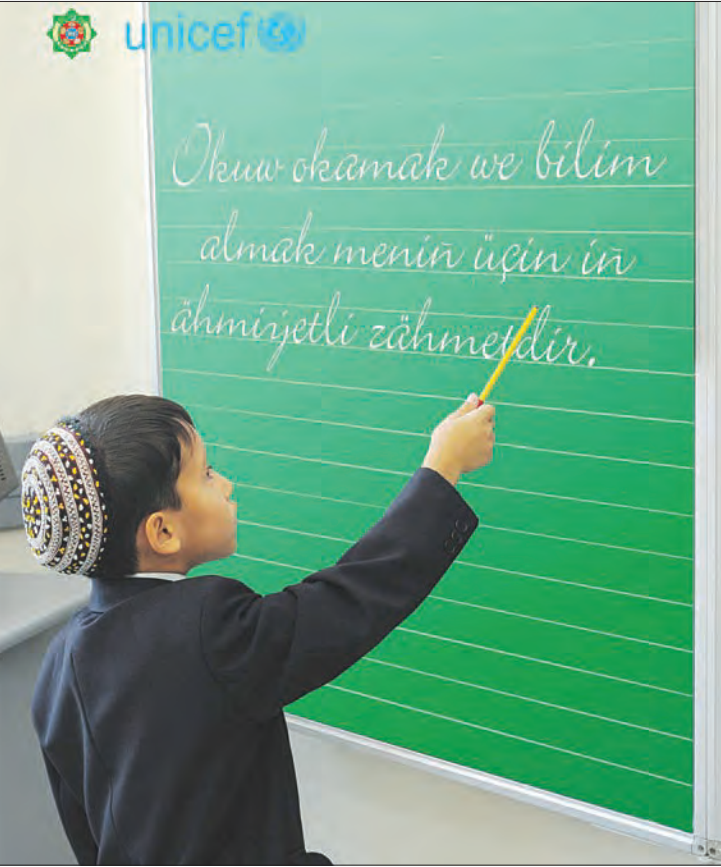 unicef
Okuw okamak we bilim
almak meniň üçin iň
ähmiýetli zähmetdir.